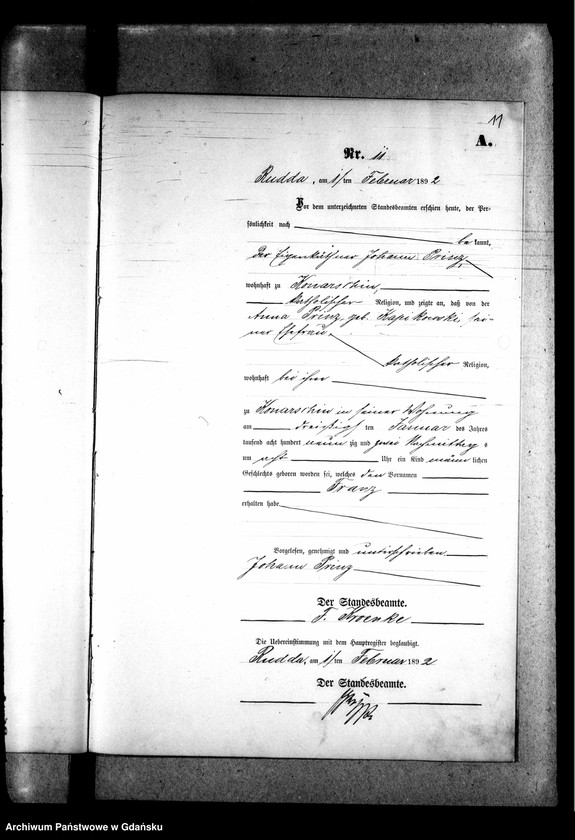 11
A.
Nr. 11
Rudda, am 1/ten Februar 1892
Vor dem unterzeichneten Standesbeamten erschien heute, der Per-
sönlichkeit nach
bekannt,
der Eigenkäthner Johann Prinz,
wohnhaft zu Konarschin,
katholischer Religion, und zeigte an, daß von der
Anna Prinz, geb. Kapikowski, sei-
ner Ehefrau,
katholischer Religion,
wohnhaft bei ihm
zu Konarschin in seiner Wohnung
am dreißigsten Januar des Jahres
tausend acht hundert neunzig und zwei Nachmittag s
um acht Uhr ein Kind männlichen
Geschlechts geboren worden sei, welches den Vornamen
Franz
erhalten habe
Vorgelesen, genehmigt und unterschrieben
Johann Prinz
Der Standesbeamte.
F. Kroenke
Die Uebereinstimmung mit dem Hauptregister beglaubigt.
Rudda, am 1/ten Februar 1892
Der Standesbeamte.
Archiwum Państwowe w Gdańsku